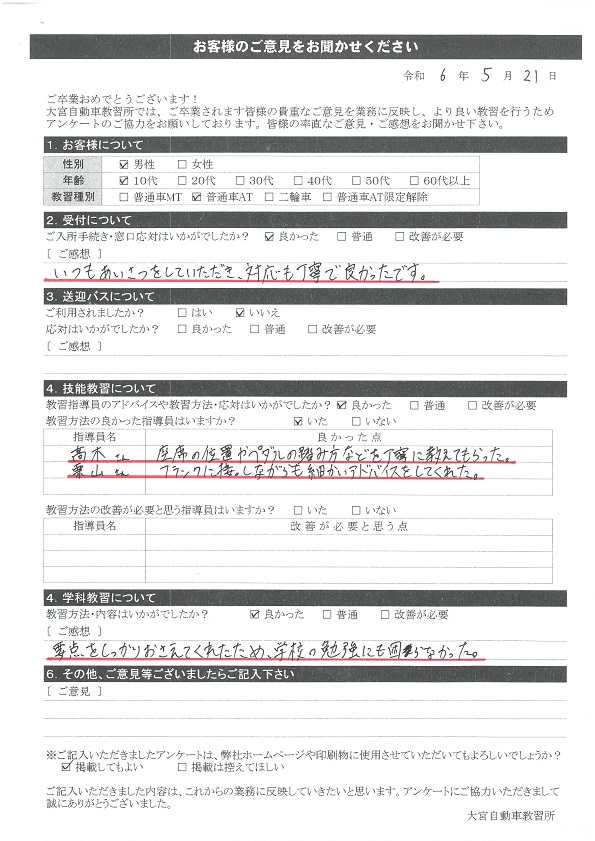 お客様のご意見をお聞かせください
令和 6 年 5 月 21 日
ご卒業おめでとうございます！
大宮自動車教習所では、ご卒業されます皆様の貴重なご意見を業務に反映し、より良い教習を行うため
アンケートのご協力をお願いしております。皆様の率直なご意見・ご感想をお聞かせ下さい。
1. お客様について
性別 ☑ 男性 ☐ 女性
年齢 ☑ 10代 ☐ 20代 ☐ 30代 ☐ 40代 ☐ 50代 ☐ 60代以上
教習種別 ☐ 普通車MT ☑ 普通車AT ☐ 二輪車 ☐ 普通車AT限定解除
2. 受付について
ご入所手続き・窓口応対はいかがでしたか？ ☑ 良かった ☐ 普通 ☐ 改善が必要
[ ご感想 ]
いつもあいさつをしていただき、対応も丁寧で良かったです。
3. 送迎バスについて
ご利用されましたか？ ☐ はい ☑ いいえ
応対はいかがでしたか？ ☐ 良かった ☐ 普通 ☐ 改善が必要
[ ご感想 ]
4. 技能教習について
教習指導員のアドバイスや教習方法・応対はいかがでしたか？ ☑ 良かった ☐ 普通 ☐ 改善が必要
教習方法の良かった指導員はいますか？ ☑ いた ☐ いない
指導員名 良かった点
高木さん 座席の位置やペダルの踏み方などを丁寧に教えてもらった。
栗山さん フランクに接しながらも細かいアドバイスをしてくれた。
教習方法の改善が必要と思う指導員はいますか？ ☐ いた ☐ いない
指導員名 改善が必要と思う点
4. 学科教習について
教習方法・内容はいかがでしたか？ ☑ 良かった ☐ 普通 ☐ 改善が必要
[ ご感想 ]
要点をしっかりおさえてくれたため、学校の勉強にも困らなかった。
6. その他、ご意見等ございましたらご記入下さい
[ ご意見 ]
※ご記入いただきましたアンケートは、弊社ホームページや印刷物に使用させていただいてもよろしいでしょうか？
☑ 掲載してもよい ☐ 掲載は控えてほしい
ご記入いただきました内容は、これからの業務に反映していきたいと思います。アンケートにご協力いただきまして
誠にありがとうございました。
大宮自動車教習所